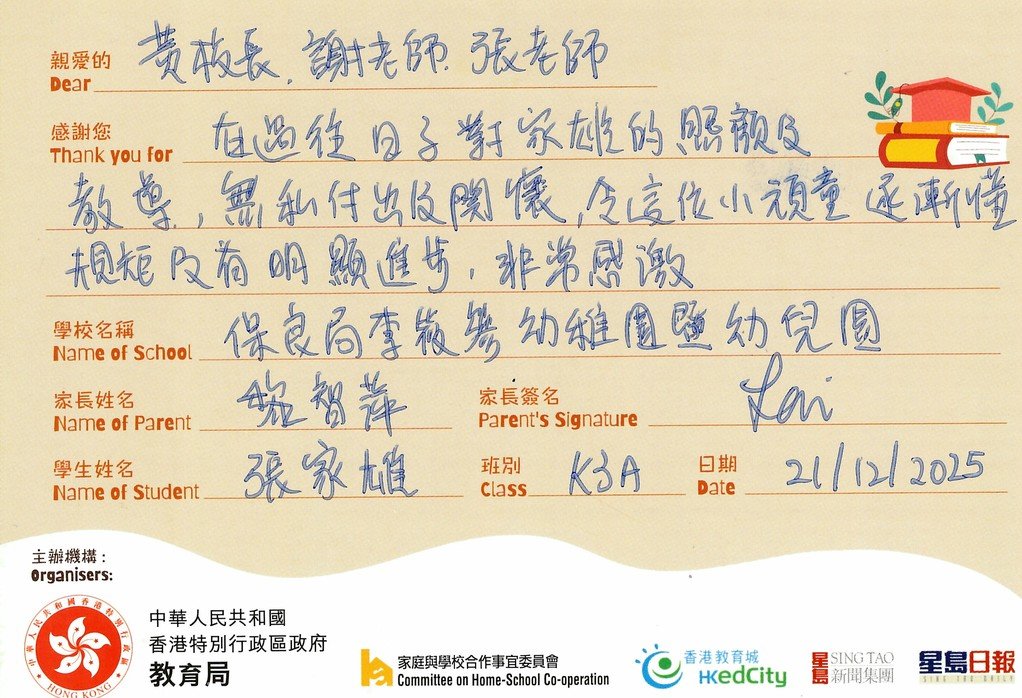 親愛的 黃校長、謝老師、張老師
Dear
感謝您 在過往日子對家雄的照顧及
Thank you for
教導，無私付出及關懷，令這位小頑童逐漸懂
規矩及有明顯進步，非常感激
學校名稱 保良局李筱箕幼稚園暨幼兒園
Name of School
家長姓名 黎智萍 家長簽名 Lai
Name of Parent Parent's Signature
學生姓名 張家雄 班別 K3A 日期 21/12/2025
Name of Student Class Date
主辦機構：
Organisers:
中華人民共和國香港特別行政區
HONG KONG
中華人民共和國
香港特別行政區政府
教育局
家庭與學校合作事宜委員會
Committee on Home-School Co-operation
香港教育城
HKedCity
星島 SING TAO
新聞集團
星島日報
SING TAO DAILY